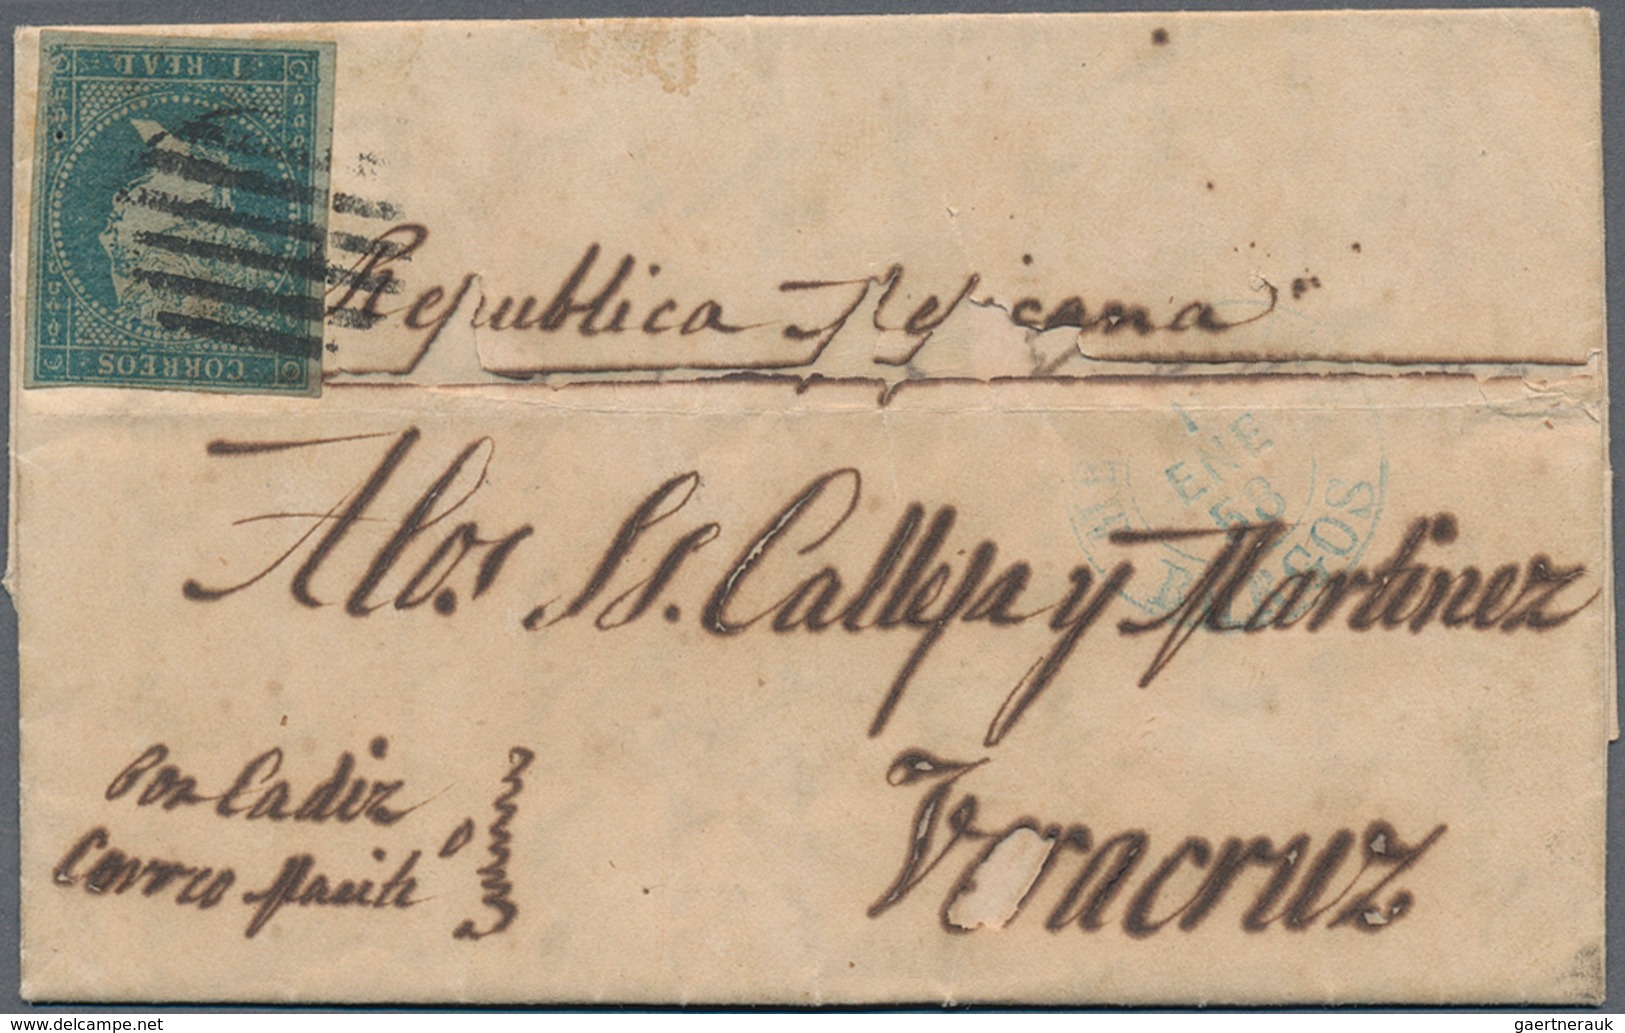 1. REAL
CORREOS
Republica Mejicana
A los SS. Calleja y Martinez
1
ENE
58
BURGOS
Por Cadiz
Correo Marit°
Veracruz
delcampe.net
gaertnerauk